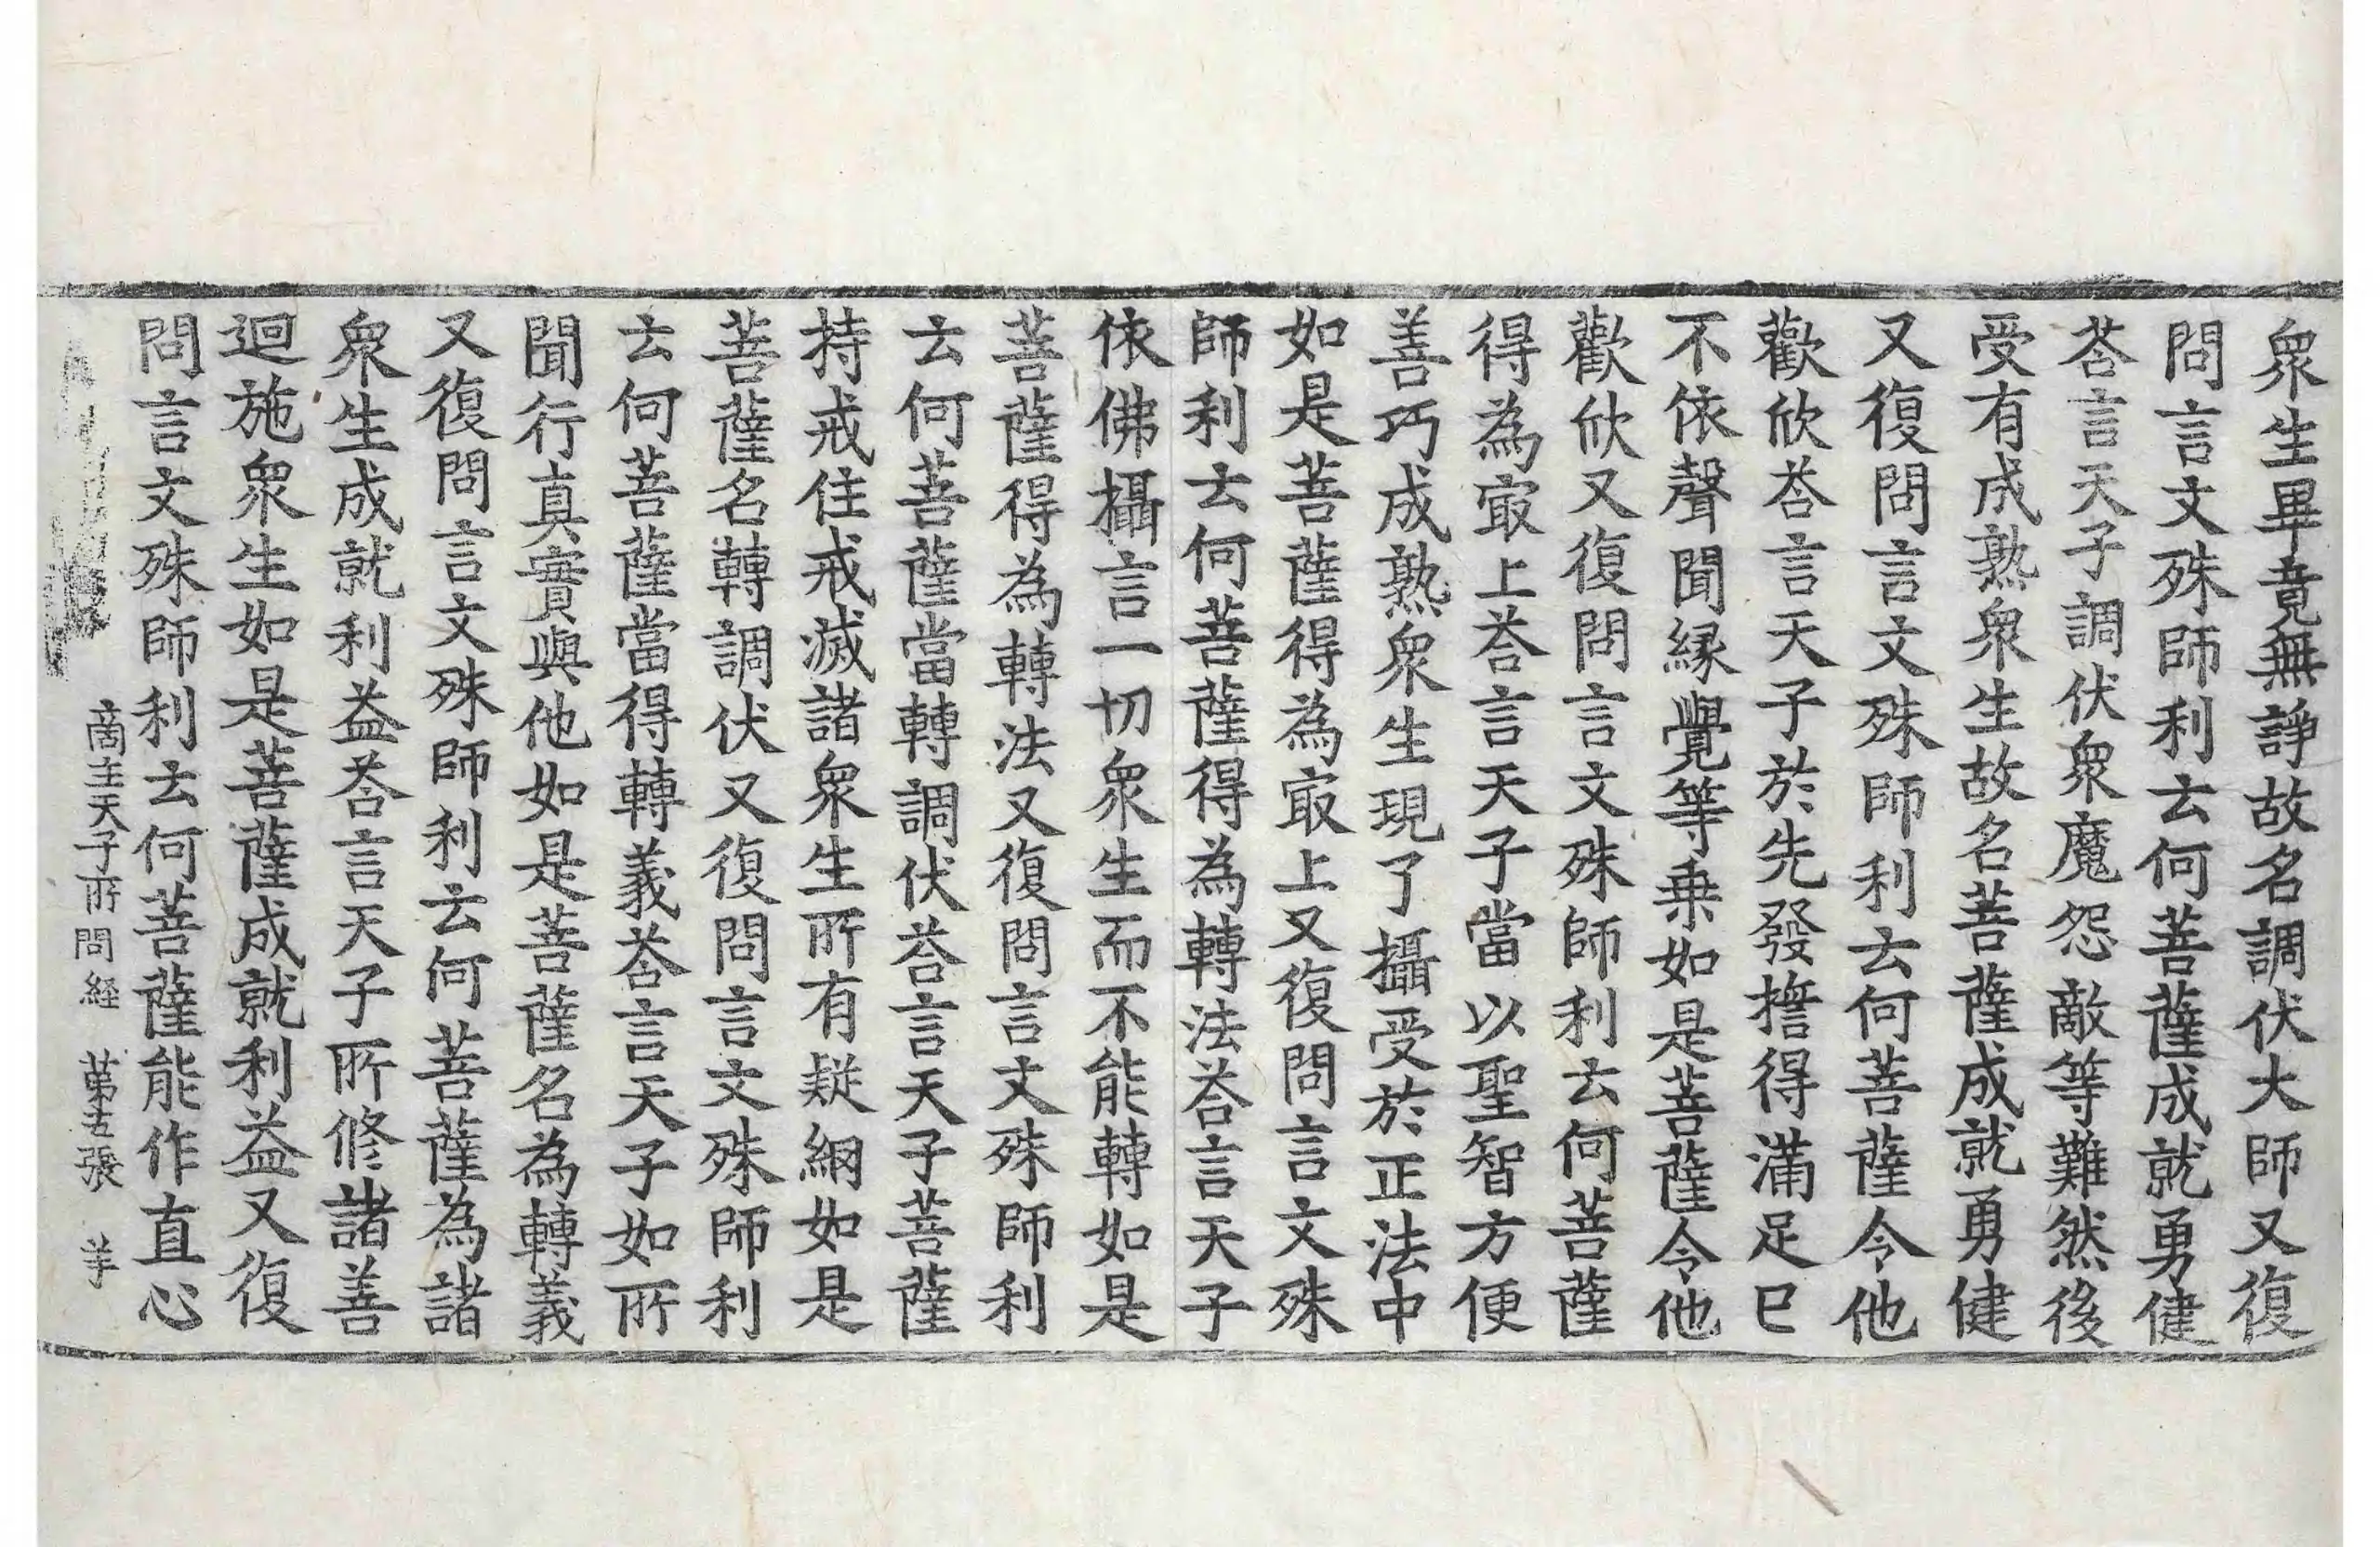 衆生畢竟無諍故名調伏大師又復
問言文殊師利云何菩薩成就勇健
荅言天子調伏衆魔怨敵等難然後
受有成熟衆生故名菩薩成就勇健
又復問言文殊師利云何菩薩令他
歡欣荅言天子於先發擔得滿足已
不依聲聞緣覺等乗如是菩薩令他
歡欣又復問言文殊師利云何菩薩
得為冣上荅言天子當以聖智方便
善巧成熟衆生現了攝受於正法中
如是菩薩得為冣上又復問言文殊
師利云何菩薩得為轉法荅言天子
依佛攝言一切衆生而不能轉如是
菩薩得為轉法又復問言文殊師利
云何菩薩當轉調伏荅言天子菩薩
持戒住戒滅諸衆生所有疑網如是
菩薩名轉調伏又復問言文殊師利
云何菩薩當得轉義荅言天子如所
聞行真實與他如是菩薩名為轉義
又復問言文殊師利云何菩薩為諸
衆生成就利益荅言天子所修諸善
迴施衆生如是菩薩成就利益又復
問言文殊師利云何菩薩能作直心
商主天子所問経 第五張 羊